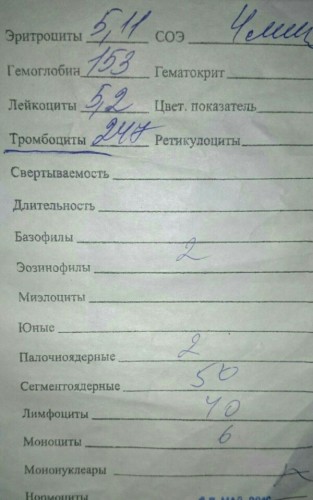 Эритроциты 5,11 СОЭ 4 мм
Гемоглобин 153 Гематокрит
Лейкоциты 5,2 Цвет. показатель
Тромбоциты 247 Ретикулоциты
Свертываемость
Длительность
Базофилы
Эозинофилы 2
Миэлоциты
Юные
Палочноядерные 2
Сегментоядерные 50
Лимфоциты 40
Моноциты 6
Мононуклеары
Нормоциты